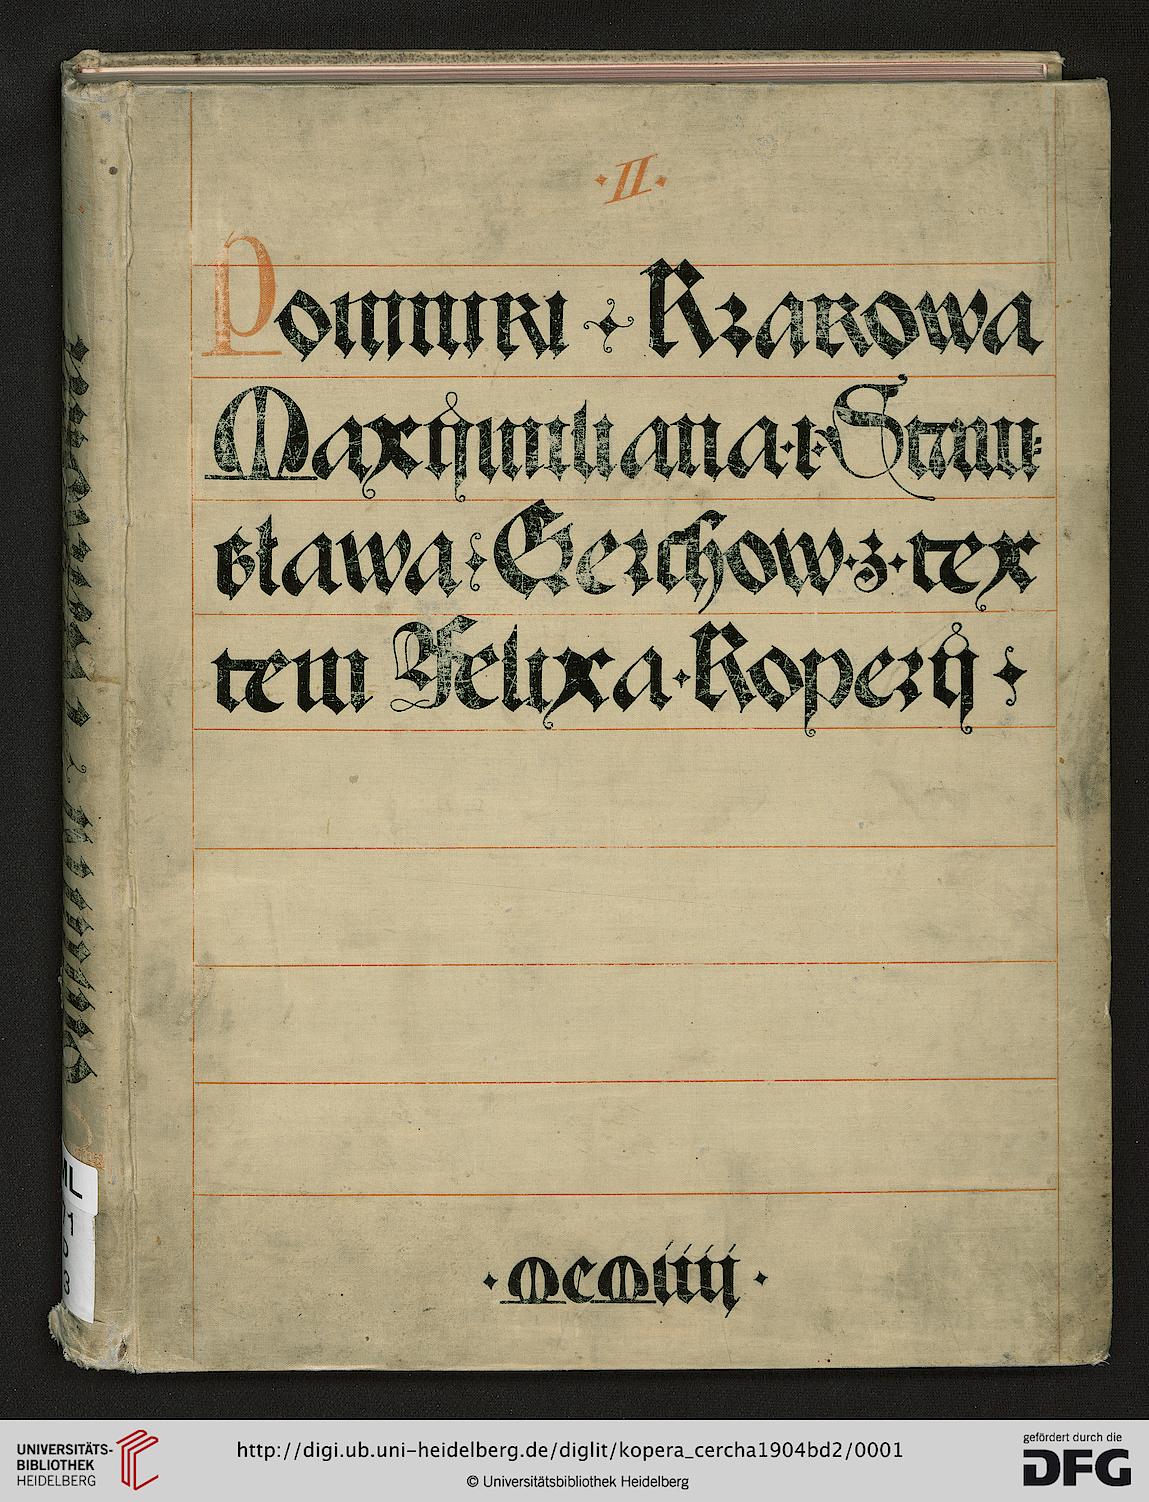 ·II·
Pomniki Krakowa
Maxÿmiliana·i·Stani:
sława Cerchow·z·tex
tem Felixa·Koperÿ
·MCMiiij·
ML
UNIVERSITÄTS-
BIBLIOTHEK
HEIDELBERG
http://digi.ub.uni-heidelberg.de/diglit/kopera_cercha1904bd2/0001
© Universitätsbibliothek Heidelberg
gefördert durch die
DFG